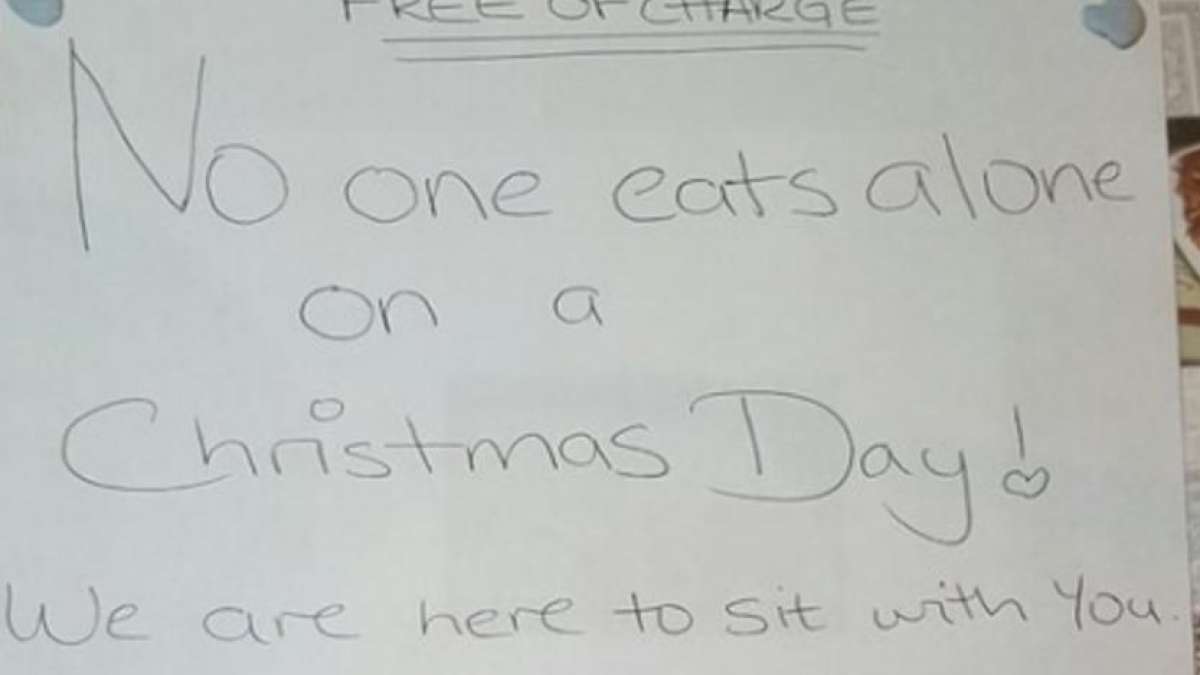 FREE OF CHARGE
No one eats alone
on a
Christmas Day!
We are here to sit with You.